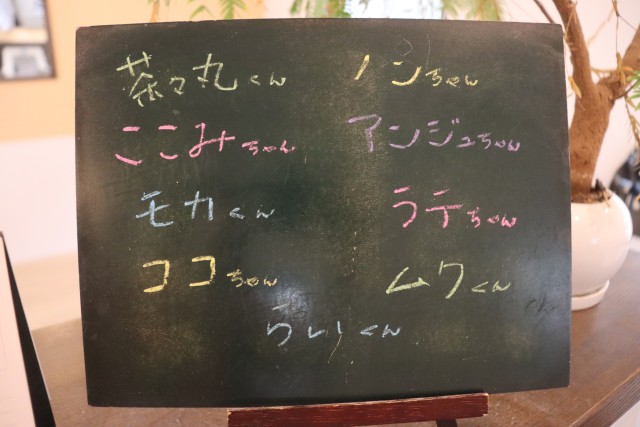 茶々丸くん ノンちゃん
ここみちゃん アンジュちゃん
モカくん ラテちゃん
ココちゃん ムクくん
らいりくん